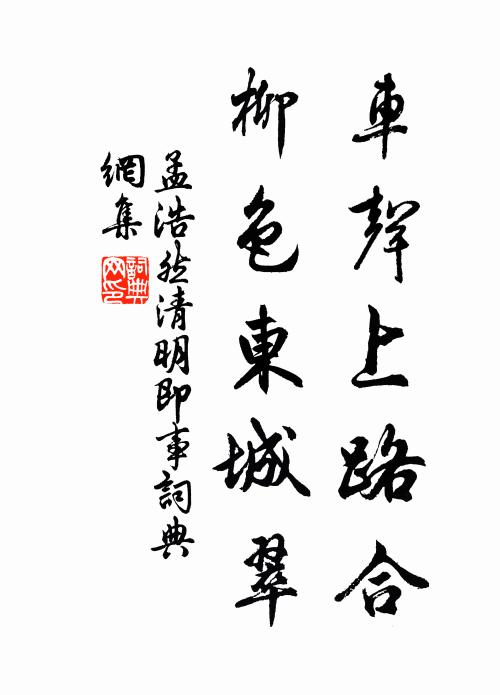 車聲上路合
柳色東城翠
孟浩然清明即事詞典
網集
詞典
网印